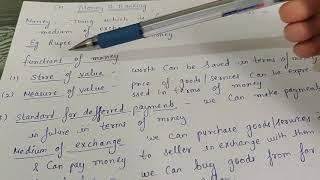 Money & Banking
Money:- Thing which is
medium of exchange
Eg Rupee
functions of money
(1) Store of value - worth can be saved in terms of money
(2) Measure of value - price of goods/services can be expre-
ssed in terms of money
(3) Standard for deffered payments - we can make payments
in future in terms of money
Medium of exchange - we can purchase goods/services
& can pay money to seller in exchange with them
we can buy goods from far